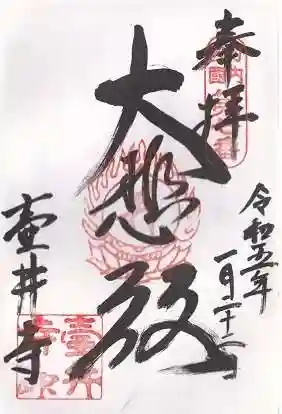 奉拝
令和五年
一月二十一
大悲殿
壷井寺